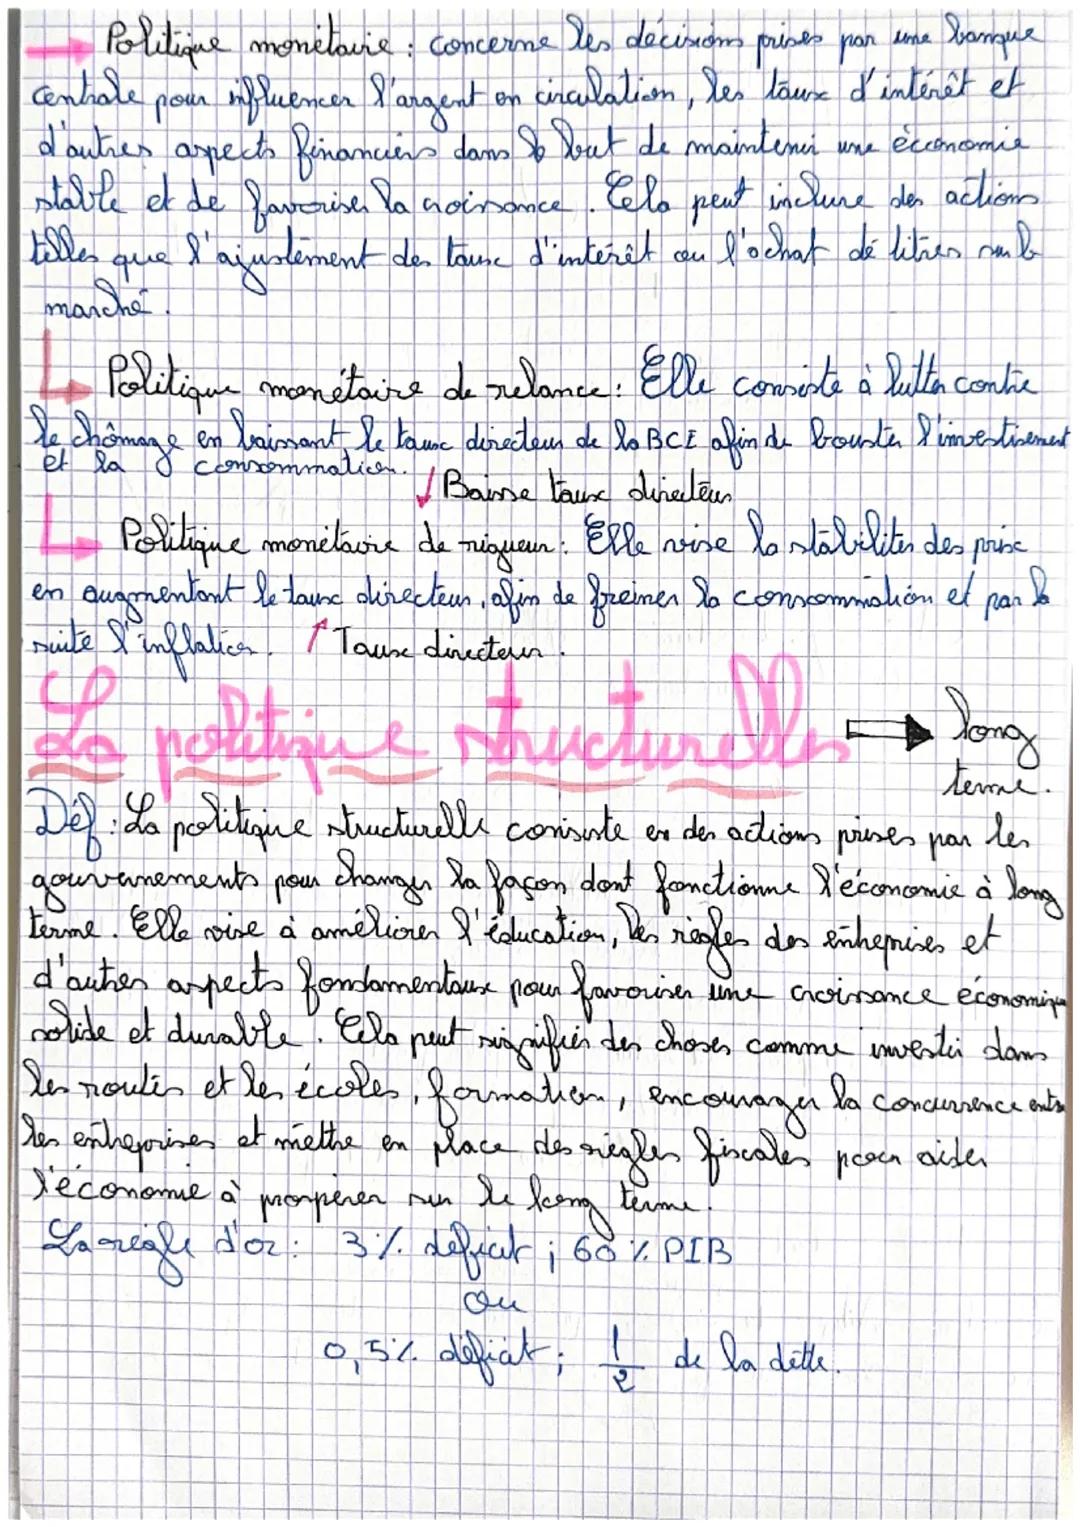 → Politique monétaire : concerne les décisions prises par une banque
centrale pour influencer l'argent en circulation, les taux d'intérêt et
d'autres aspects financiers dans le but de maintenir une économie
stable et de favoriser la croissance. Cela peut inclure des actions
telles que l'ajustement des taux d'intérêt ou l'achat de titres sur le
marché.
Politique monétaire de relance : Elle consiste à lutter contre
le chômage en baissant le taux directeur de la BCE afin de booster l'investisement
et la consommation.
↓ Baisse taux directeur
Politique monétaire de rigueur : Elle vise la stabilités des prix
en augmentant le taux directeur, afin de freiner la consommation et par la
suite l'inflation. ↑ Taux directeur.
La politique structurelles → long
terme.
Déf : La politique structurelle consiste en des actions prises par les
gouvernements pour changer la façon dont fonctionne l'économie à long
terme. Elle vise à améliorer l'éducation, les règles des entreprises et
d'autres aspects fondamentaux pour favoriser une croissance économique
solide et durable. Cela peut signifier des choses comme investir dans
les routes et les écoles, formation, encourager la concurrence entre
les entreprises et mettre en place des règles fiscales pour aider
l'économie à prospérer sur le long terme.
La règle d'or : 3% déficit ; 60% PIB
ou
0,5% déficit ; 1/2 de la dette.